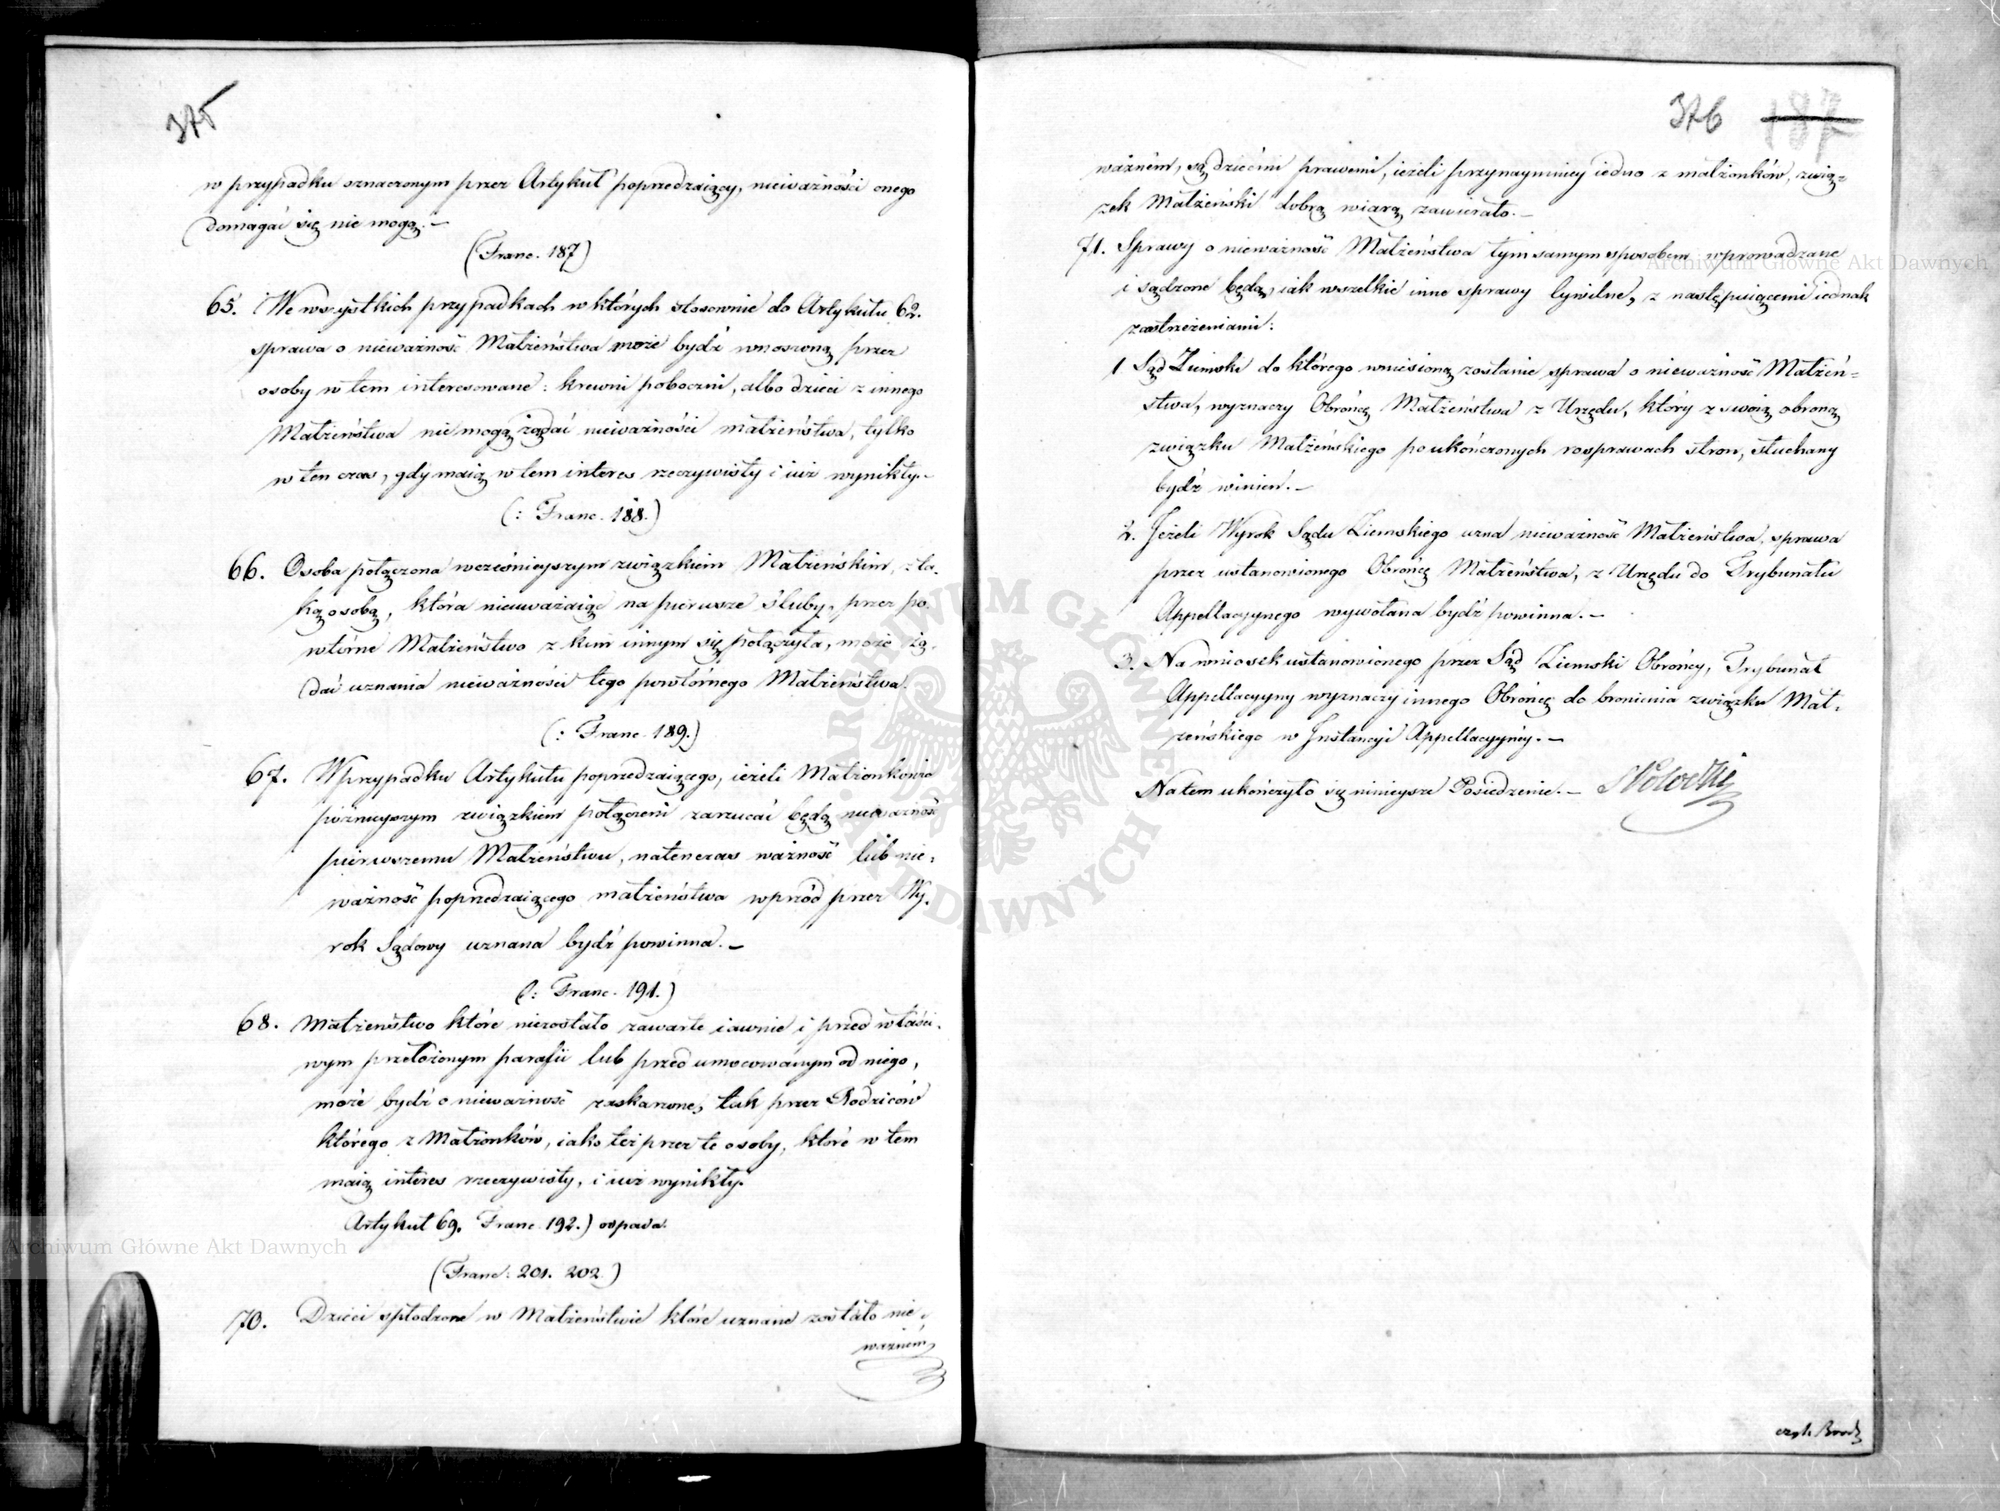 375
w przypadku oznaczonym przez Artykuł poprzedzaiący, nieważności onego
domagać się nie mogą. —
(Franc. 187)
65. We wszystkich przypadkach w których stosownie do Artykułu 62.
sprawa o nieważność Małżeństwa może bydź wnoszoną przez
osoby w tem interesowane: krewni poboczni, albo dzieci z innego
Małżeństwa nie mogą żądać nieważności małżeństwa, tylko
w ten czas, gdy maią w tem interes rzeczywisty i iuż wynikły. —
(: Franc. 188.)
66. Osoba połączona wcześnieyszym związkiem Małżeńskim, z ta-
ką osobą, która nieuważaiąc na pierwsze śluby, przez po-
wtórne Małżeństwo z kim innym się połączyła, może żą-
dać uznania nieważności tego powtórnego Małżeństwa.
(: Franc. 189.)
67. W przypadku Artykułu poprzedzaiącego, ieżeli Małżonkowie
poźnieyszym związkiem połączeni zarzucać będą nieważność
pierwszemu Małżeństwu, natenczas ważność lub nie-
ważność poprzedzaiącego małżeństwa wprzód przez Wy-
rok Sądowy uznana bydź powinna. —
(: Franc. 191.)
68. Małżeństwo które niezostało zawarte iawnie i przed właści-
wym przełożonym parafii lub przed umocowanym od niego,
może bydź o nieważność zaskarżone, tak przez Rodziców
którego z Małżonków, iako też przez te osoby, które w tem
maią interes rzeczywisty, i iuż wynikły.
Artykuł 69. Franc. 192.) ospada.
(Franc: 201. 202.)
70. Dzieci spłodzone w Małżeństwie które uznane zostało nie-
ważnem,
376 187
ważnem, są dziećmi prawemi, ieżeli przynaymniey iedno z małżonków, zwią-
zek Małżeński dobrą wiarą zawierało. —
71. Sprawy o nieważność Małżeństwa tym samym sposobem wprowadzane
i sądzone będą, iak wszelkie inne sprawy Cywilne, z następuiącemi iednak
zastrzeżeniami:
1. Sąd Ziemski do którego wniesioną zostanie sprawa o nieważność Małżeń-
stwa, wyznaczy Obrońcę Małżeństwa z Urzędu, który z swoią obroną
związku Małżeńskiego po ukończonych rosprawach stron, słuchany
bydź winien. —
2. Jeżeli Wyrok Sądu Ziemskiego uzna nieważność Małżeństwa, sprawa
przez ustanowionego Obrońcę Małżeństwa, z Urzędu do Trybunału
Appellacyynego wywołana bydź powinna. —
3. Na wniosek ustanowionego przez Sąd Ziemski Obrońcy, Trybunał
Appellacyyny wyznaczy innego Obrońcę do bronienia związku Mał-
żeńskiego w Instancyi Appellacyyney. —
Na tem ukończyło się ninieysze Posiedzenie. —
Archiwum Główne Akt Dawnych
Archiwum Główne Akt Dawnych
ARCHIWUM GŁÓWNE AKT DAWNYCH